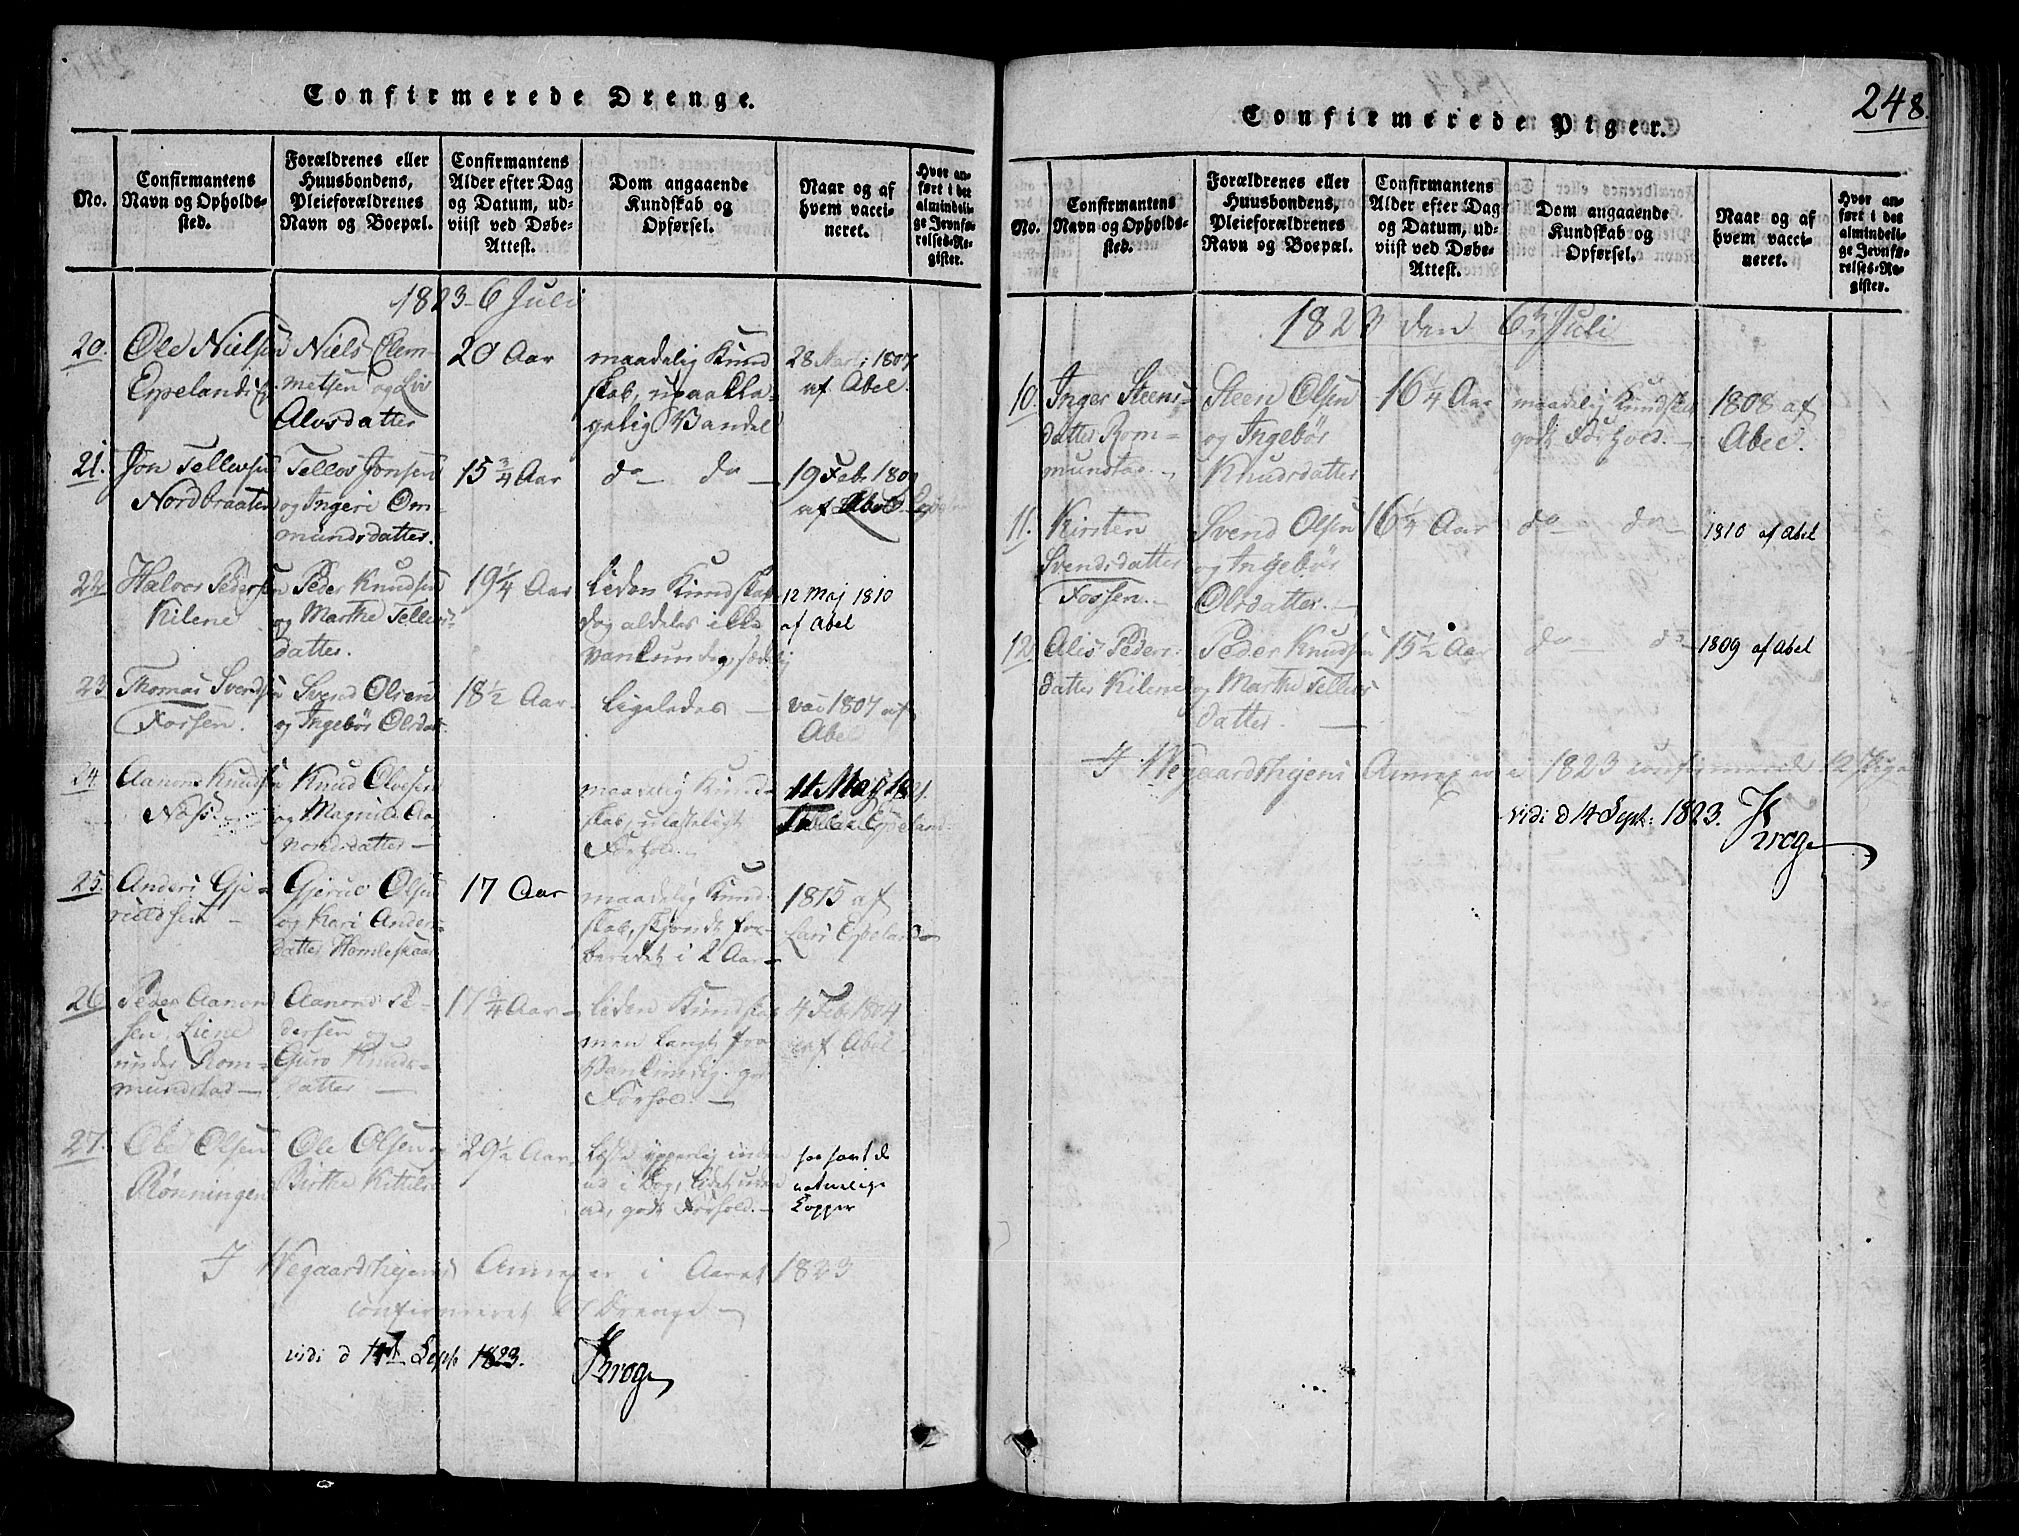 Confirmerede Drenge.
No.
Confirmantens
Navn og Opholds-
sted.
Forældrenes eller
Huusbondens,
Pleieforældrenes
Navn og Boepæl.
Confirmantens
Alder efter Dag
og Datum, ud-
viist ved Døbe-
Attest.
Dom angaaende
Kundskab og
Opførsel.
Naar og af
hvem vacci-
neret.
Hvor an-
ført i det
almindeli-
ge Jevnfø-
relses-Re-
gister.
1823 - 6 Juli
20.
Ole Nielsen
Epeland
Niels Clem-
metsen og Liv
Alvsdatter
20 Aar
maadelig Kund
skab, upaakla-
gelig Vandel
1807
af Abel.
21.
Jon Tellevsen
Nordbraaten
Tellev Jonsen
og Ingeri Om-
mundsdatter.
15 3/4 Aar
do - do -
19 Feb. 1809
af Abel
22
Halvor Pedersen
Kilene
Peder Knudsen
og Marthe Tellevs-
datter.
19 1/4 Aar
Liden Kundskab
dog aldeles ikke
vankundig, sædelig
12 Maj 1810
af Abel
23
Thomas Svendsen
Fossen.
Svend Olsen
og Ingebør Olsdat
18 1/2 Aar -
Ligeledes -
vac 1807 af
Abel
24.
Aanon Knudsen
Næs
Knud Olvesen
og Magnild Aa-
nonsdatter -
maadelig Kund-
skab, ulasteligt
Forhold. -
25.
Anders Gje-
ruldsen -
Gjerul Olsen
og Kari Anders-
datter Homleskaar
17 Aar
maadelig Kund
skab, skjøndt for-
beredet i 2 Aar -
1815 af
Lars Epeland
26
Peder Aanon
sen, Liene
under Rom-
mundstad -
Aanon Pe-
dersen og
Guro Knuds-
datter -
17 3/4 Aar -
liden Kundskab
men langt fra
Vankundig. god
Forhold. -
4 Feb. 1804
af Abel
27.
Ole Olsen
Rønningen
Ole Olsen og
Birthe Kittels
20 1/2 Aar
Læste ypperlig inden
ad i Bog, lidet uden
ad, godt Forhold. -
har havt de
naturlige
Kopper
I Wegaardshejens Annex er i Aaret 1823
confirmeret 27 Drenge. -
vidi d 14 Septb 1823.
Krog
248.
Confirmerede Piger.
No.
Confirmantens
Navn og Opholds-
sted.
Forældrenes eller
Huusbondens,
Pleieforældrenes
Navn og Boepæl.
Confirmantens
Alder efter Dag
og Datum, ud-
viist ved Døbe-
Attest.
Dom angaaende
Kundskab og
Opførsel.
Naar og af
hvem vacci-
neret.
Hvor an-
ført i det
almindeli-
ge Jevnfø-
relses-Re-
gister.
1823 den 6te Juli
10.
Inger Steens-
datter Rom-
munstad. -
Steen Olsen
og Ingebør
Knudsdatter
16 1/4 Aar
maadelig Kundskab
godt Forhold. -
1808 af
Abel.
11.
Kirsten
Svendsdatter
Fossen. -
Svend Olsen
og Ingebør
Olsdatter. -
16 1/4 Aar
do - do -
1810 af Abel
12
Alis Peders-
datter Kilene
Peder Knudsen
og Marthe Tellevs
datter. -
15 1/2 Aar
do - do -
1809 af Abel
I Wegaardshejens Annex er i 1823 confirmerede 12 Piger
vidi d 14 Sept: 1823.
Krog